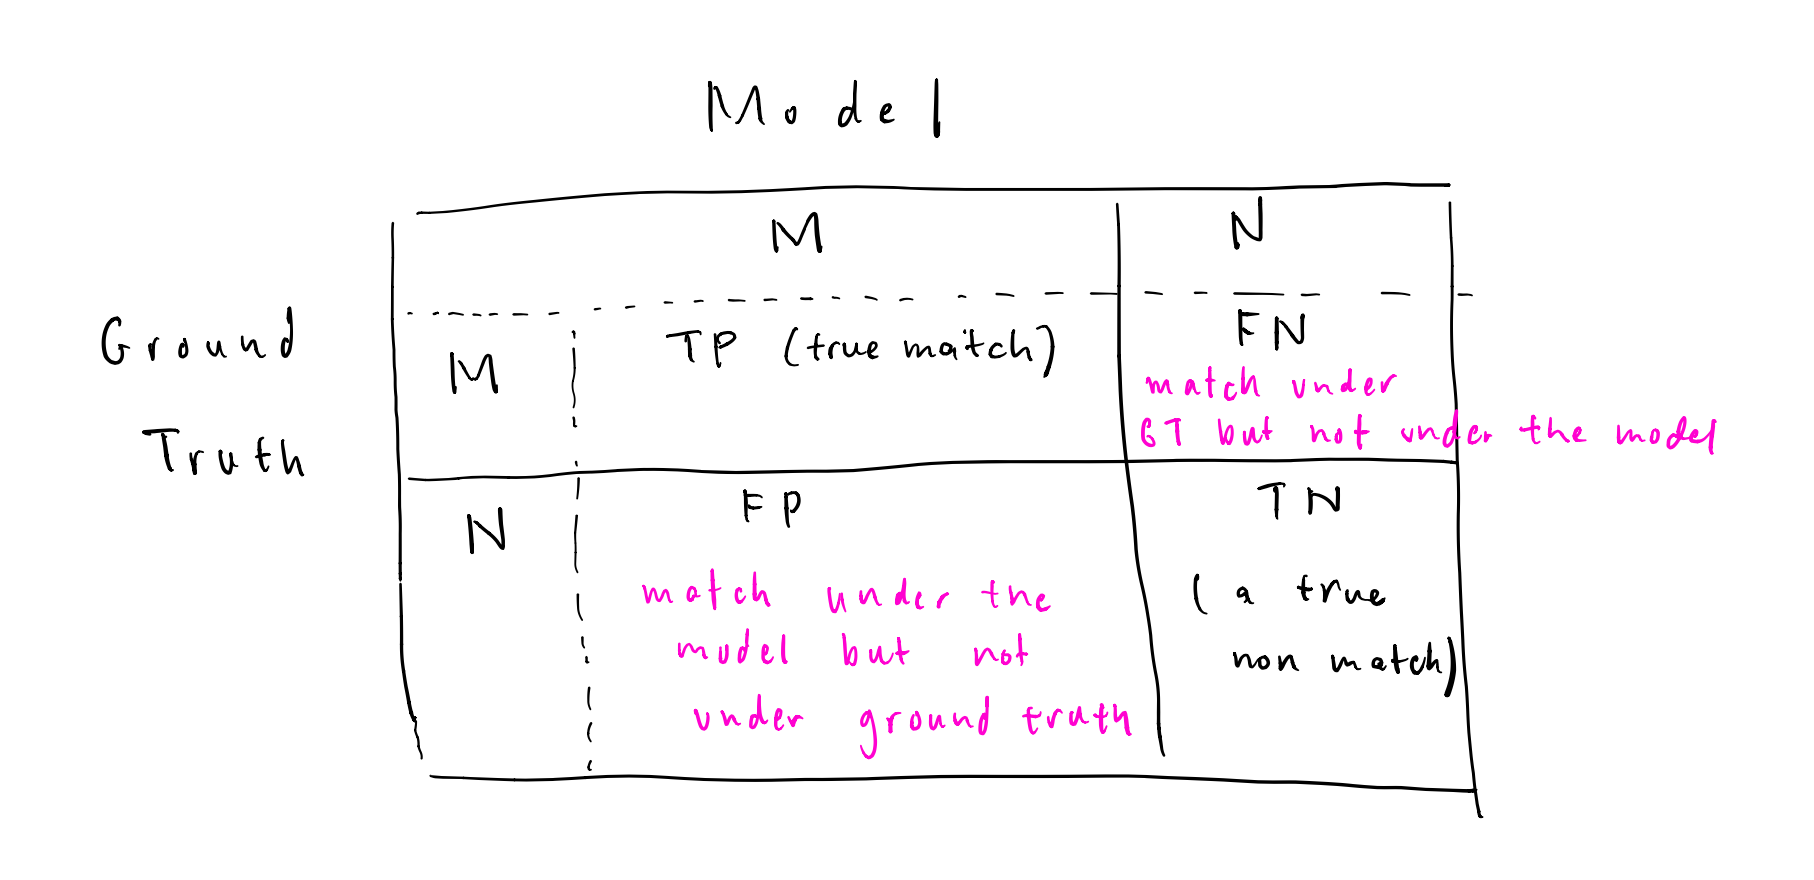 Model
M N
Ground
Truth
M TP (true match) FN
match under
GT but not under the model
N FP TN
match under the
model but not
under ground truth
( a true
non match)